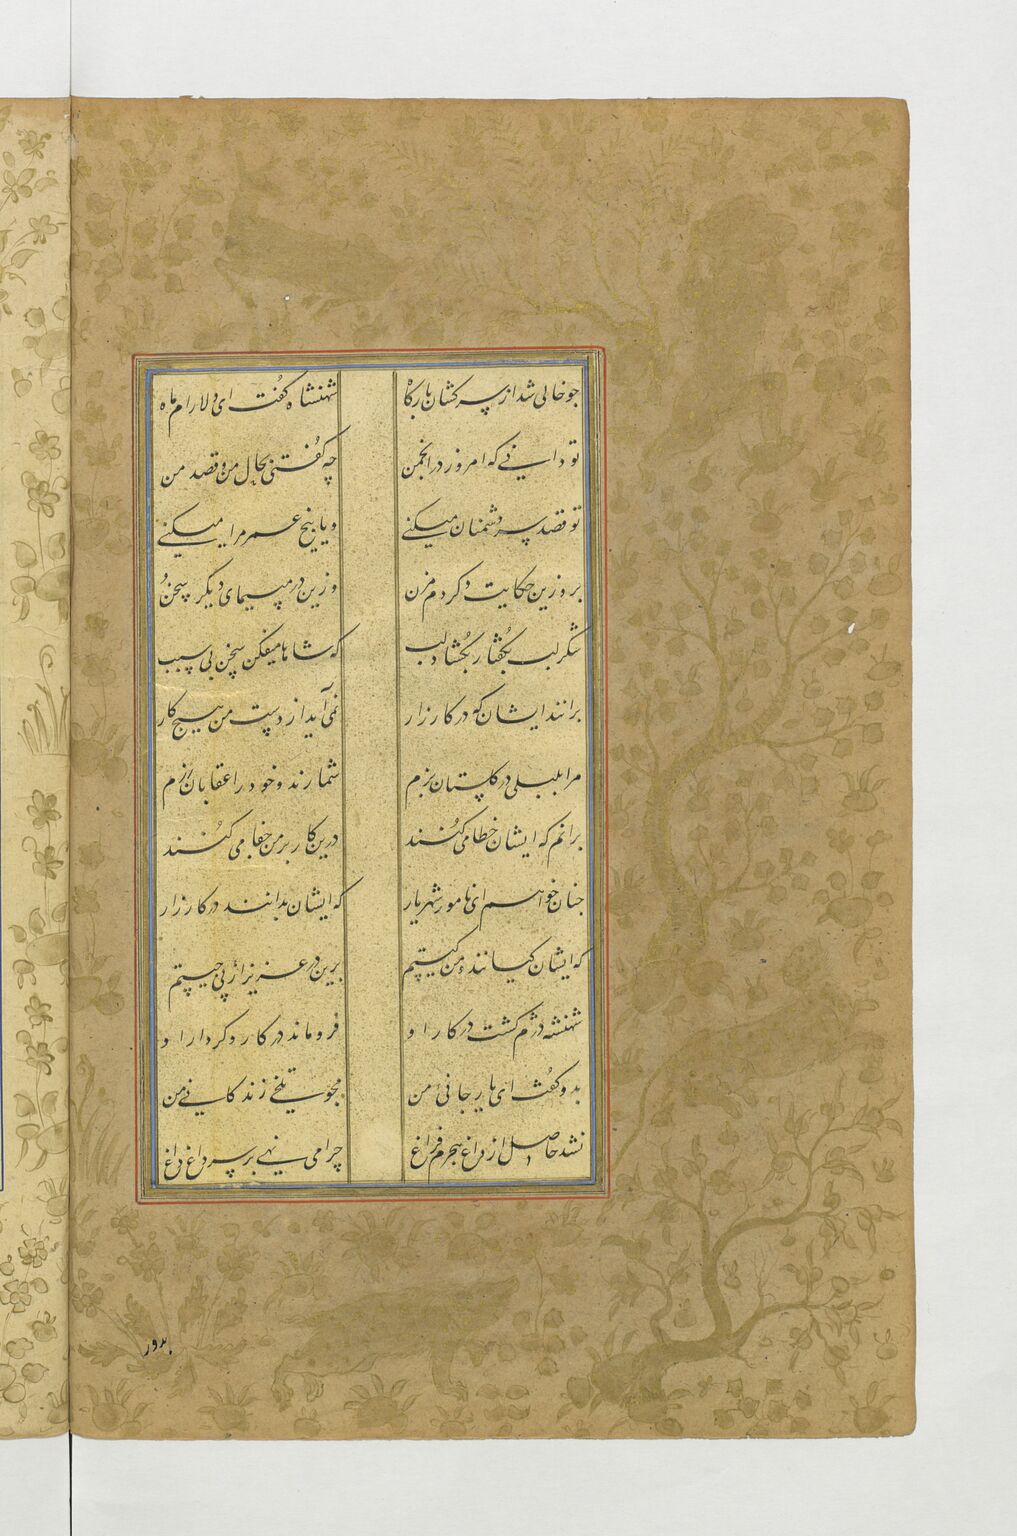 چو خالی شد از سرکشان بارگاه شهنشاه گفت ای دلارام ماه
تو دانی که امروز در انجمن چه گفتی بحال من و قصد من
تو قصد سر دشمنان میکنی و یا بیخ عمر مرا میکنی
برو زین حکایت دگر دم مزن وزین در مپیمای دیگر سخن
شکرلب بگفتار بگشاد لب که شاها میفکن سخن بی سبب
برانند ایشان که در کارزار نمی‌آید از دست من هیچ کار
مرا بلبلی در گلستان بزم شمارند و خود را عقابان رزم
برانم که ایشان خطا می کنند درین کار بر من جفا می کنند
چنان خواهم ای نامور شهریار که ایشان بدانند در کارزار
که ایشان کیانند و من کیستم برین در عزیز از پی چیستم
شهنشه دژم گشت در کار او فرو ماند در کار و کردار او
بدو گفت ای یار جانی من مجو تلخی زندگانی من
نشد حاصل از داغ هجرم فراغ چرا می نهی بر سر داغ داغ
بدور